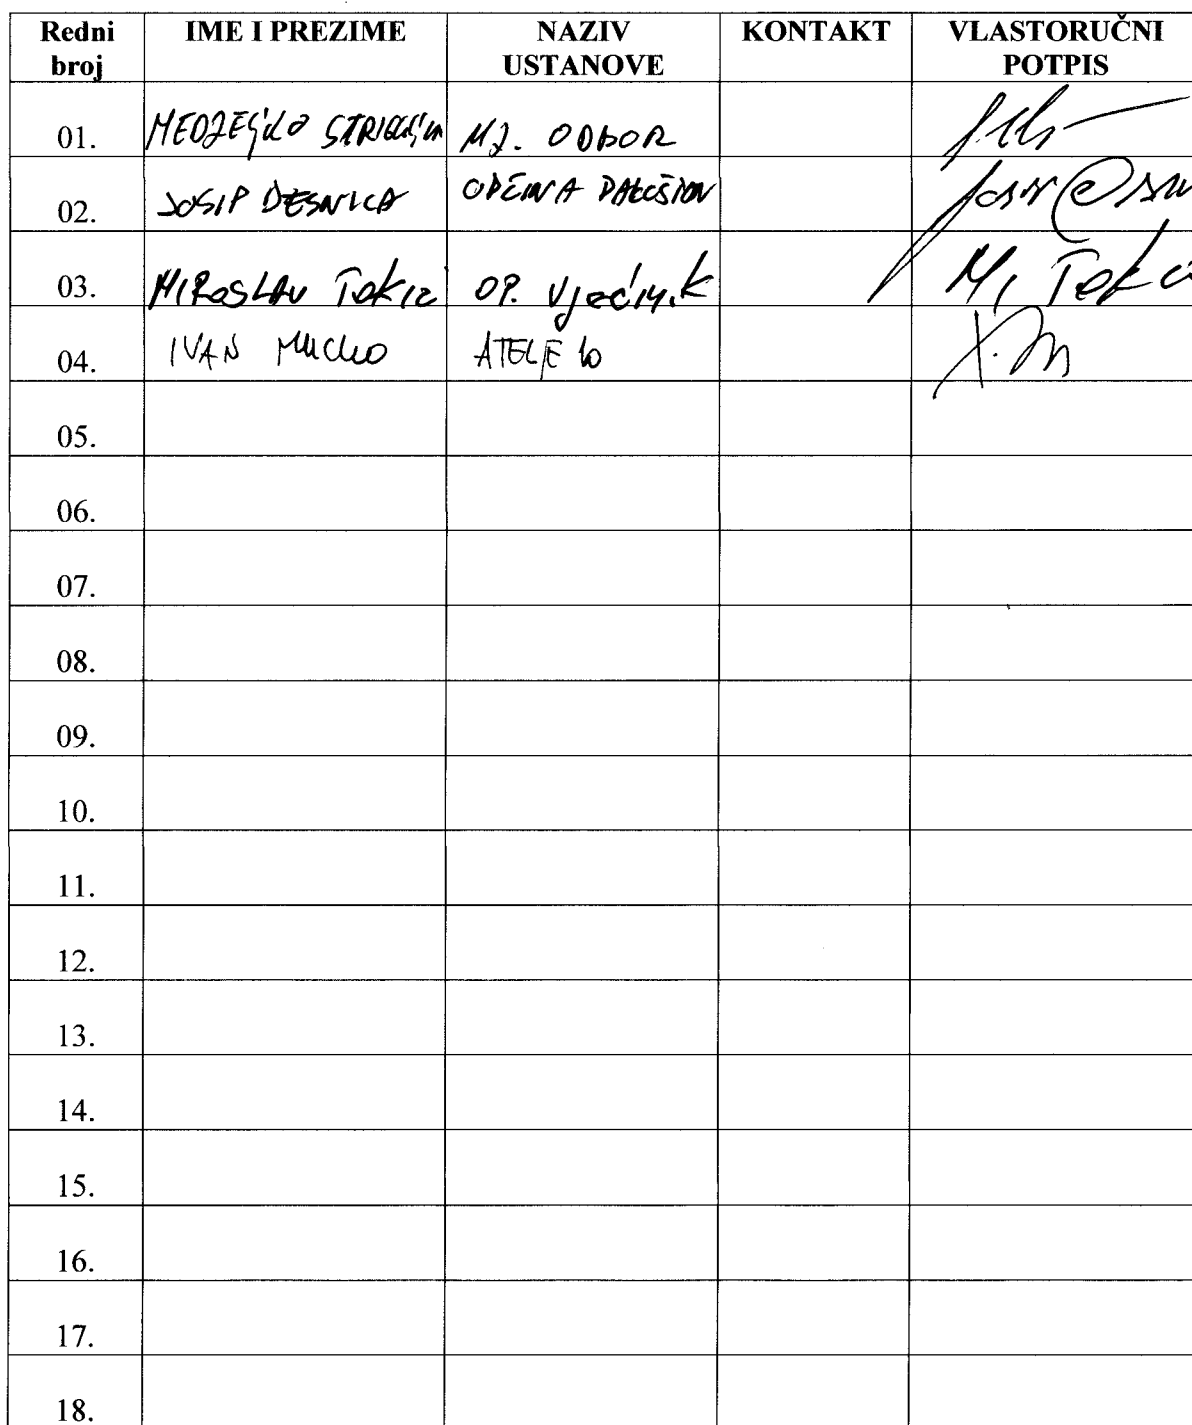 Redni broj IME I PREZIME NAZIV USTANOVE KONTAKT VLASTORUČNI POTPIS
01. MJ. ODBOR
02. JOSIP DESNICA
03. MIROSLAV TOKIĆ OP. Vjećnik M. Tokić
04. IVAN MUCKO ATELJE
05.
06.
07.
08.
09.
10.
11.
12.
13.
14.
15.
16.
17.
18.